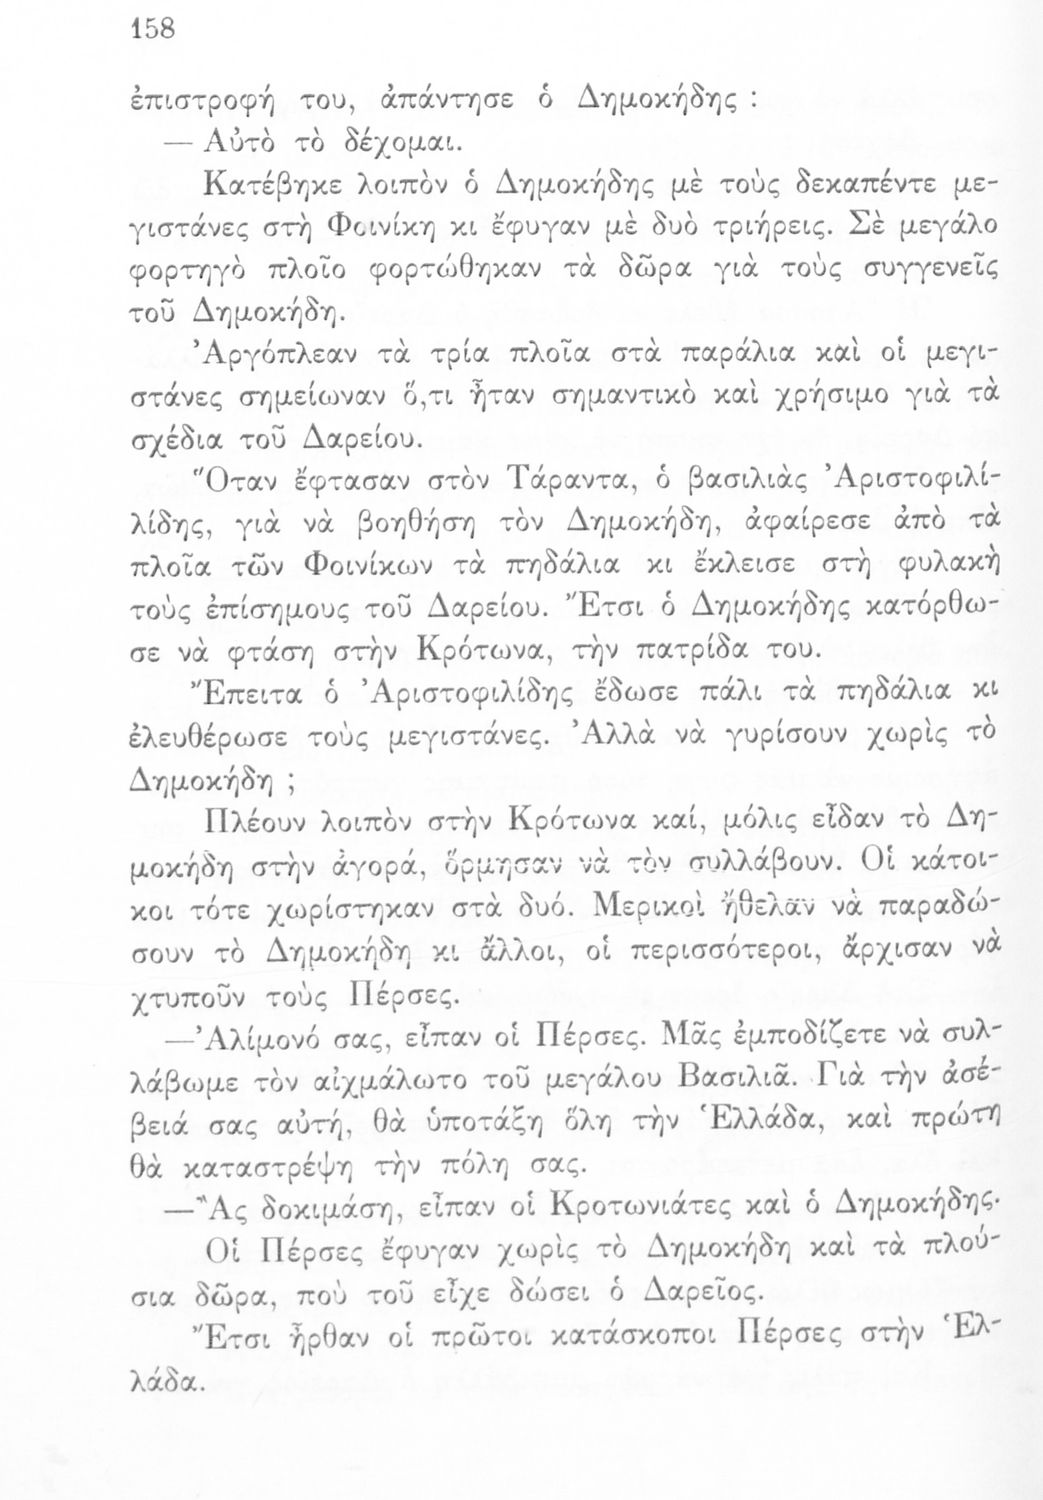 158
ἐπιστροφή του, ἀπάντησε ὁ Δημοκήδης :
— Αὐτὸ τὸ δέχομαι.
Κατέβηκε λοιπὸν ὁ Δημοκήδης μὲ τοὺς δεκαπέντε με-
γιστάνες στὴ Φοινίκη κι ἔφυγαν μὲ δυὸ τριήρεις. Σὲ μεγάλο
φορτηγὸ πλοῖο φορτώθηκαν τὰ δῶρα γιὰ τοὺς συγγενεῖς
τοῦ Δημοκήδη.
Ἀργόπλεαν τὰ τρία πλοῖα στὰ παράλια καὶ οἱ μεγι-
στάνες σημείωναν ὅ,τι ἦταν σημαντικὸ καὶ χρήσιμο γιὰ τὰ
σχέδια τοῦ Δαρείου.
Ὅταν ἔφτασαν στὸν Τάραντα, ὁ βασιλιὰς Ἀριστοφιλί-
λίδης, γιὰ νὰ βοηθήση τὸν Δημοκήδη, ἀφαίρεσε ἀπὸ τὰ
πλοῖα τῶν Φοινίκων τὰ πηδάλια κι ἔκλεισε στὴ φυλακὴ
τοὺς ἐπίσημους τοῦ Δαρείου. Ἔτσι ὁ Δημοκήδης κατόρθω-
σε νὰ φτάση στὴν Κρότωνα, τὴν πατρίδα του.
Ἔπειτα ὁ Ἀριστοφιλίδης ἔδωσε πάλι τὰ πηδάλια κι
ἐλευθέρωσε τοὺς μεγιστάνες. Ἀλλὰ νὰ γυρίσουν χωρὶς τὸ
Δημοκήδη ;
Πλέουν λοιπὸν στὴν Κρότωνα καί, μόλις εἶδαν τὸ Δη-
μοκήδη στὴν ἀγορά, ὅρμησαν νὰ τὸν συλλάβουν. Οἱ κάτοι-
κοι τότε χωρίστηκαν στὰ δυό. Μερικοὶ ἤθελαν νὰ παραδώ-
σουν τὸ Δημοκήδη κι ἄλλοι, οἱ περισσότεροι, ἄρχισαν νὰ
χτυποῦν τοὺς Πέρσες.
—Ἀλίμονό σας, εἶπαν οἱ Πέρσες. Μᾶς ἐμποδίζετε νὰ συλ-
λάβωμε τὸν αἰχμάλωτο τοῦ μεγάλου Βασιλιᾶ. Γιὰ τὴν ἀσέ-
βειά σας αὐτή, θὰ ὑποτάξη ὅλη τὴν Ἑλλάδα, καὶ πρώτη
θὰ καταστρέψη τὴν πόλη σας.
—Ἂς δοκιμάση, εἶπαν οἱ Κροτωνιάτες καὶ ὁ Δημοκήδης.
Οἱ Πέρσες ἔφυγαν χωρὶς τὸ Δημοκήδη καὶ τὰ πλού-
σια δῶρα, ποὺ τοῦ εἶχε δώσει ὁ Δαρεῖος.
Ἔτσι ἦρθαν οἱ πρῶτοι κατάσκοποι Πέρσες στὴν Ἑλ-
λάδα.